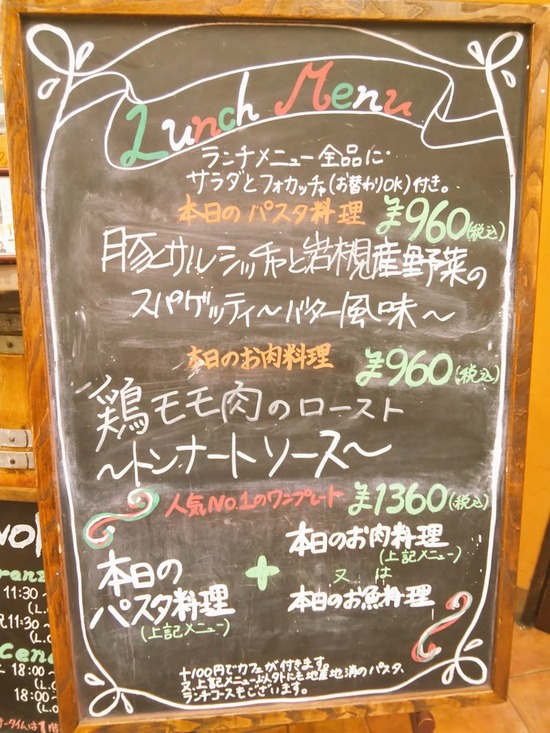 Lunch Menu
ランチメニュー全品に
サラダとフォカッチャ(お替わりOK)付き。
本日のパスタ料理 ¥960(税込)
豚とサルシッチャと岩槻産野菜の
スパゲッティ～バター風味～
本日のお肉料理 ¥960(税込)
鶏モモ肉のロースト
～トンナートソース～
人気NO.1のワンプレート ¥1360(税込)
本日の
パスタ料理
(上記メニュー)
+
本日のお肉料理
(上記メニュー)
又は
本日のお魚料理
+100円でカフェが付きます。
又、上記メニュー以外にも地産地消のパスタ、
ランチコースもございます。
11:30～
(L.O
11:30～
(L.O
Cena
18:00～
(L.O
18:00～
(L.O